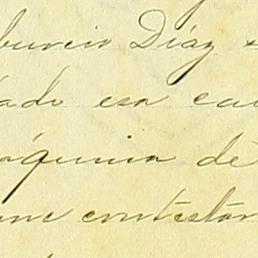 burcio Díaz
ado esa ca
áquina de
me contestar